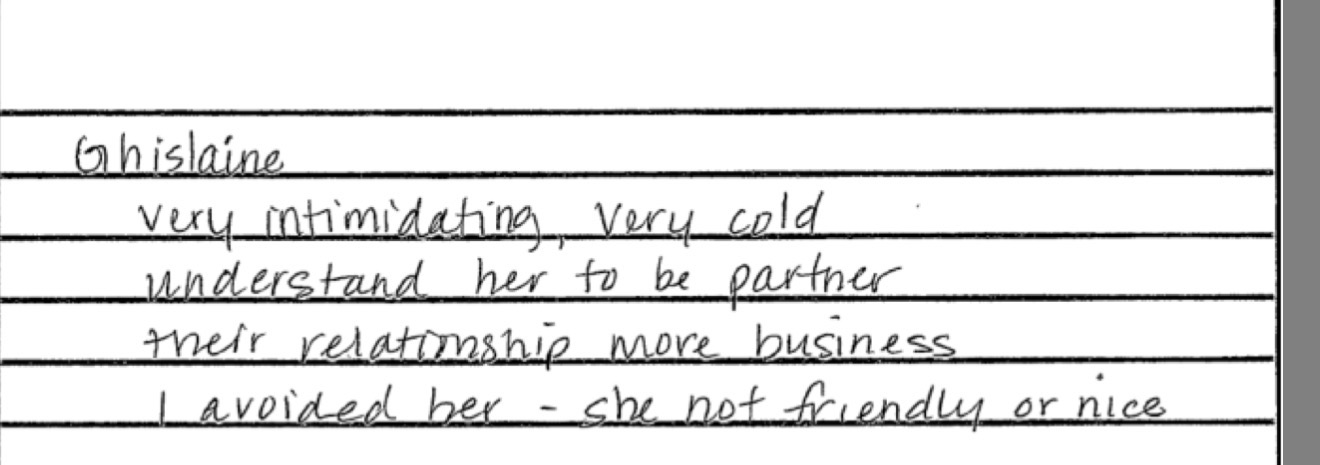 Ghislaine
very intimidating, very cold
understand her to be partner
their relationship more business
I avoided her - she not friendly or nice